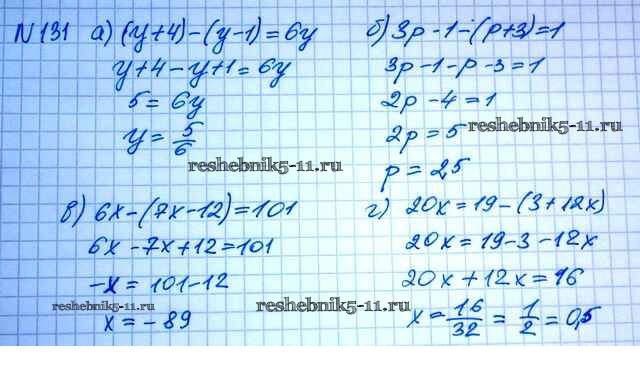 N131 а) (y+4)-(y-1)=6y
y+4-y+1=6y
5=6y
y=5/6
reshebnik5-11.ru
б) 3p-1-(p+3)=1
3p-1-p-3=1
2p-4=1
2p=5
reshebnik5-11.ru
p=2,5
в) 6x-(7x-12)=101
6x-7x+12=101
-x=101-12
reshebnik5-11.ru
x=-89
г) 20x=19-(3+12x)
20x=19-3-12x
20x+12x=16
reshebnik5-11.ru
x=16/32=1/2=0,5